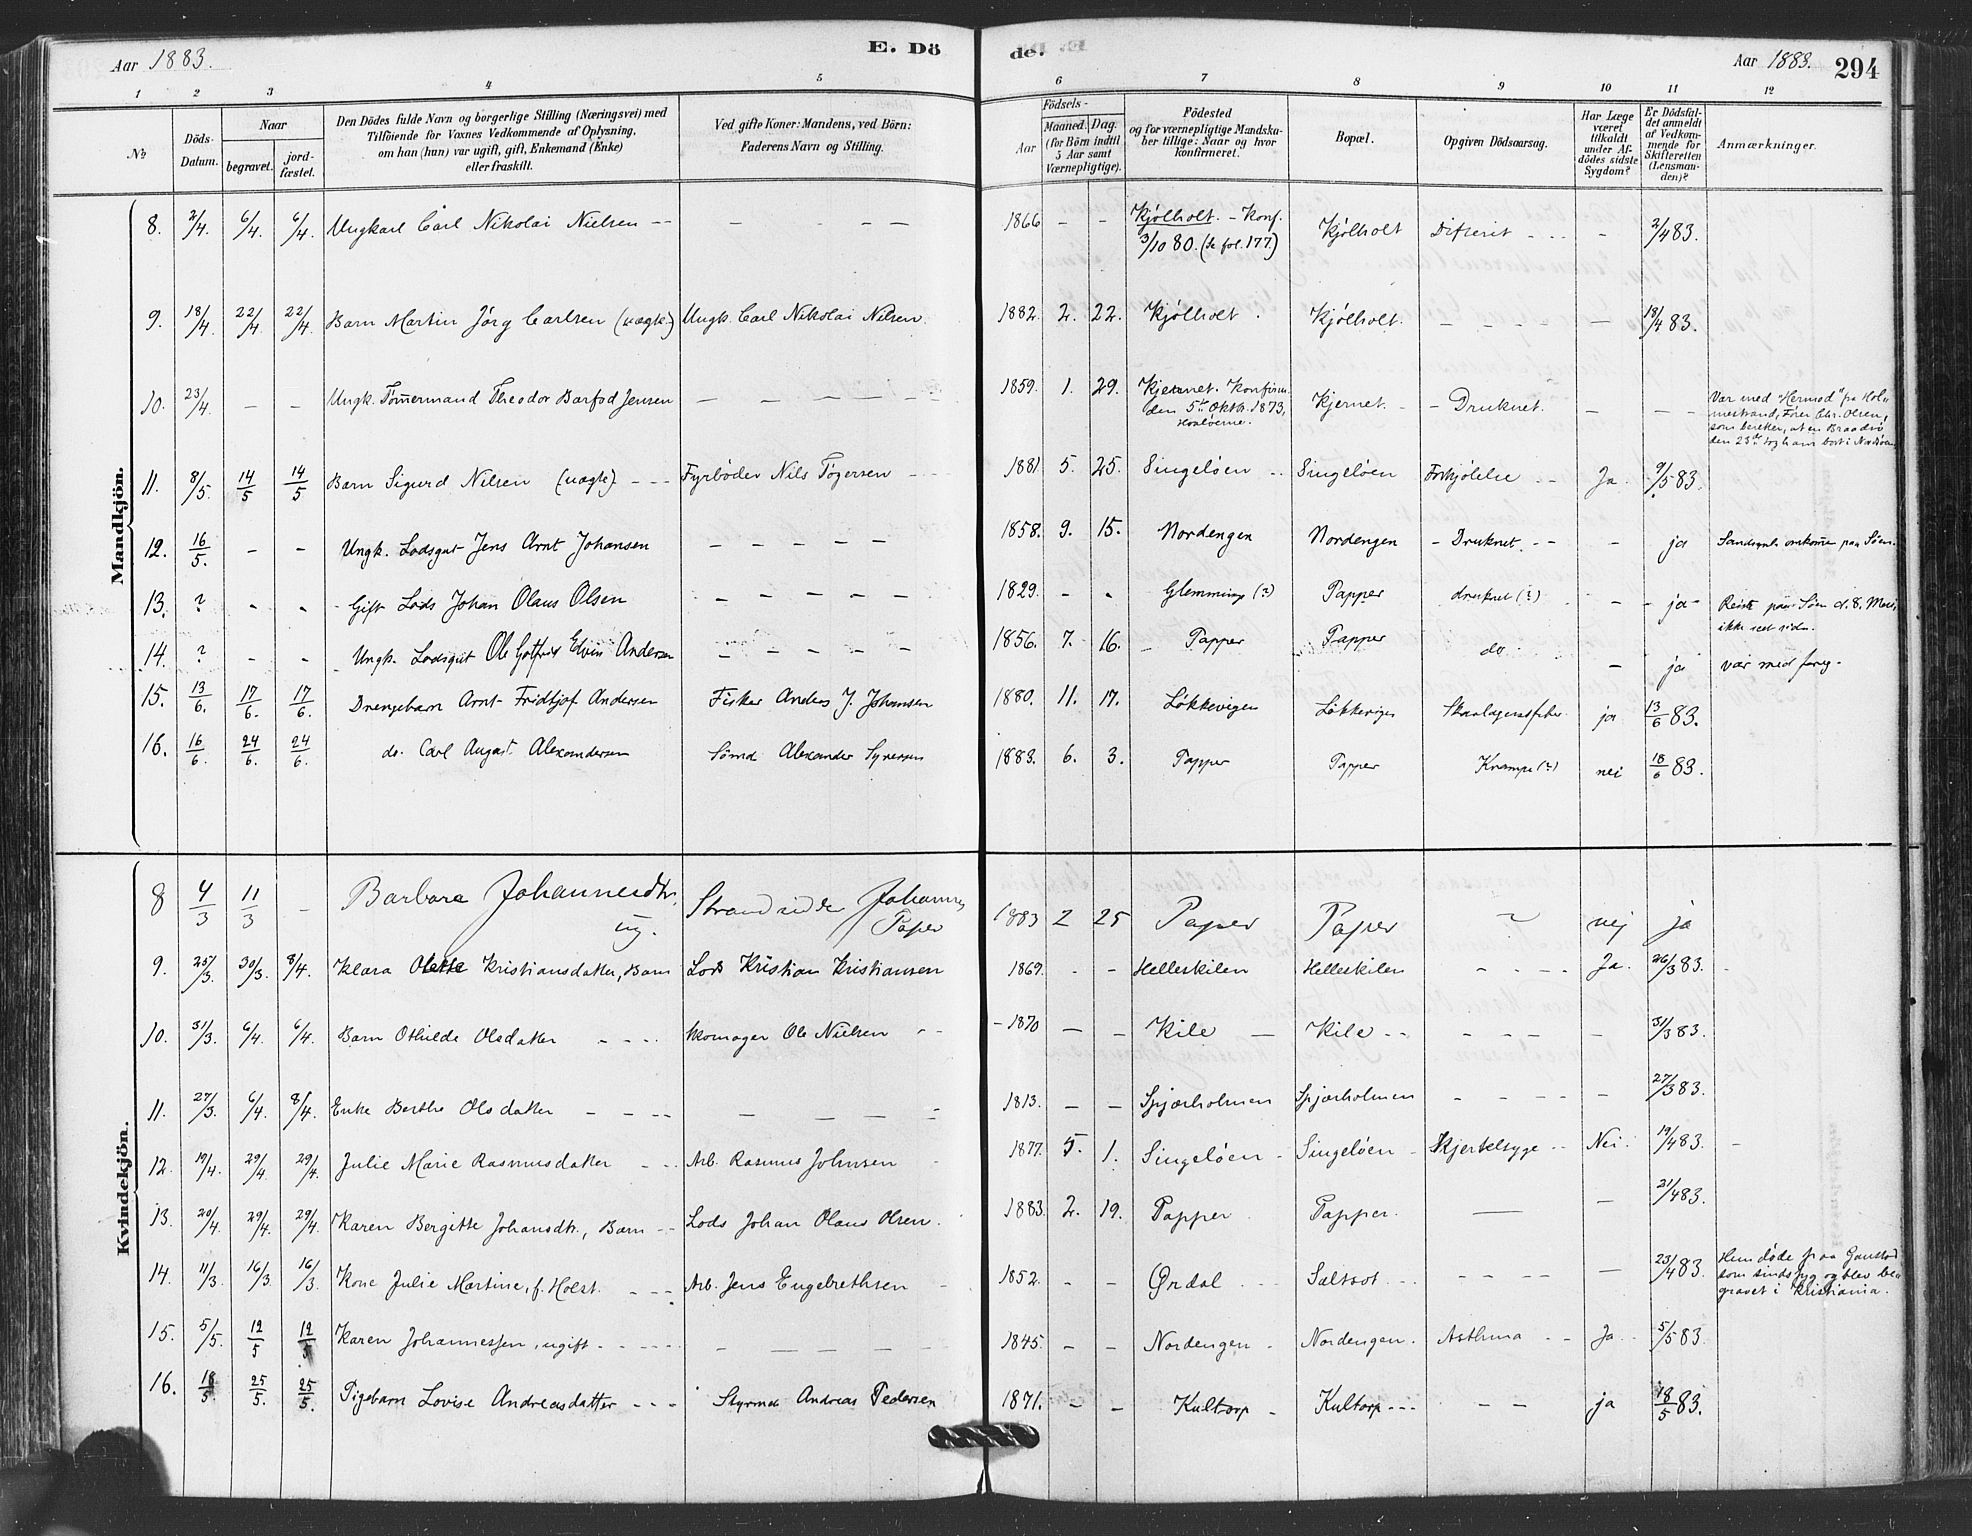 Aar 1883.
E. Dö
de.
Aar 1883.
294
1 2 3 4 5 6 7 8 9 10 11 12
No
Döds-Datum.
Naar
begravet.
jord-fæstet.
Den Dödes fulde Navn og borgerlige Stilling (Næringsvei) med
Tilföiende for Voxnes Vedkommende af Oplysning,
om han (hun) var ugift, gift, Enkemand (Enke)
eller fraskilt.
Ved gifte Koner: Mandens, ved Börn:
Faderens Navn og Stilling.
Födsels-
Aar
Maaned. Dag.
(for Börn indtil
5 Aar samt
Værnepligtige).
Födested
og for værnepligtige Mandska-
ber tillige: Naar og hvor
konfirmeret.
Bopæl.
Opgiven Dödsaarsag.
Har Læge
været
tilkaldt
under Af-
dödes sidste
Sygdom?
Er Dödsfal-
det anmeldt
af Vedkom-
mende for
Skifteretten
(Lensman-
den)?
Anmærkninger.
Mandkjön.
8. 2/4. 6/4. 6/4. Ungkarl Carl Nikolai Nielsen -- — - - - - 1866 - - Kjølholt. - Konf. 3/10 80. (se fol. 177.) Kjølholt Difterit - - - - 2/4 83.
9. 18/4 22/4. 22/4. Barn Martin Jörg Carlsen (uægte) Ungk. Carl Nikolai Nilsen. 1882. 2. 22. Kjølholt. Kjølholt. - - - - — 18/4 83.
10. 23/4. - - Ungk. Tømmermand Theodor Barfod Jensen - - - - - 1859. 1. 29. Kjernet. Konfirm. den 5te Oktbr. 1873, Hvaløerne. Kjernet - - Druknet. - - - Var med "Hermod" fra Hol-
mestrand, Fører Chr. Olsen,
som beretter, at en Braadsø
den 23de tog ham bort i Nordsøen.
11. 8/5. 14/5 14/5 Barn Sigurd Nilsen (uægte). - - - Fyrbøder Nils Tøgersen - - 1881 5. 25. Singeløen - - Singeløen Forkjølelse - - Ja. 9/5 83.
12. 16/5. - - Ungk. Lodsgut Jens Arnt Johansen - - - - - 1858. 9. 15. Nordengen Nordengen - Druknet. - - - ja Sandsynl. omkomne paa Søen.
13. ? - - Gift Lods Johan Olaus Olsen - - - - - 1829. - - Glemminge (?) Papper druknet (?) - - ja - Reiste paa Søen d. 8. Mai,
ikke seet siden.
14. ? - - Ungk. Lodsgut Ole Gotfred Edvin Andersen - - - - - 1856. 7. 16. - Papper Papper do - - ja var med foreg-
15. 13/6. 17/6. 17/6. Drengebarn Arnt Fridtjof Andersen Fisker Anders J. Johansen 1880. 11. 17. Løkkevigen Løkkevigen Skarlagensfeber ja 13/6 83.
16. 16/6 24/6. 24/6. do. Carl August Alexandersen Sømd Alexander Syversen 1883. 6. 3. Papper Papper Krampe (?) nei 18/6 83.
Kvindekjön.
8 4/3 11/3 - Barbara Johannesdtr. ug. Strandsidder Johannes Paper 1883 2 25 Paper Paper ? nej ja
9. 25/3. 30/3. 8/4. Klara Olette Kristiansdatter, Barn Lods Kristian Kristiansen 1869. - - Helleskilen Helleskilen - - - - Ja. 26/3 83. -
10. 31/3. 6/4. 6/4. Barn Othilde Olsdatter - - - - Skomager Ole Nielsen - - - 1870 — - Kile — Kile - - - - - - - 31/3 83.
11. 27/3. 6/4. 8/4. Enke Berthe Olsdatter - - - - - - - - - 1813. - - Spjærholmen Spjærholmen - - - - - 27/3 83.
12. 19/4. 29/4 29/4. Julie Marie Rasmusdatter - - - Arb. Rasmus Johnsen - 1877. 5. 1. Singeløen - Singeløen - Kjertelsyge - - Nei. 19/4 83. -
13. 20/4. 29/4. 29/4. Karen Bergitte Johansdtr., Barn - - Lods Johan Olaus Olsen. 1883. 2. 19. Papper. Papper. — - 21/4 83.
14. 11/3. 16/3 16/3. Kone Julie Martine, f. Holst. - - - Arb. Jens Engebrethsen - 1852. - - Ørdal - - - Saltrot. - - - - - - - — 23/4 83. Hun døde paa Gaustad
som sindssyg og blev be-
gravet i Kristiania.
15. 5/5 12/5 12/5 Karen Johannessen, ugift - - - - - - - - - 1845. - - Nordengen - Nordengen. Asthma - - Ja. 5/5 83.
16. 18/5. 25/5. 25/5. Pigebarn Lovise Andreasdatter - - - Styrmd Andreas Pedersen 1871. - - Kultorp - Kultorp - - - - - ja 18/5 83.